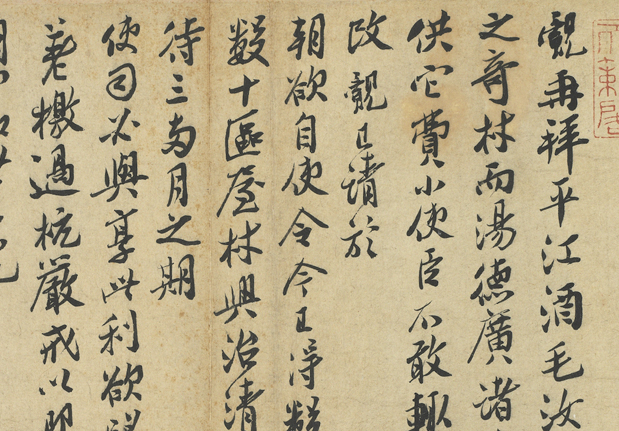 觌再拜平江酒毛汝
之奇材而湯德廣諸
供它費小使臣不敢輒
改觌已請於
朝欲自使令今王淨
數十區屋材與治清
待三兩月之期
使司必與享此利欲望
著檄過杭嚴戒以